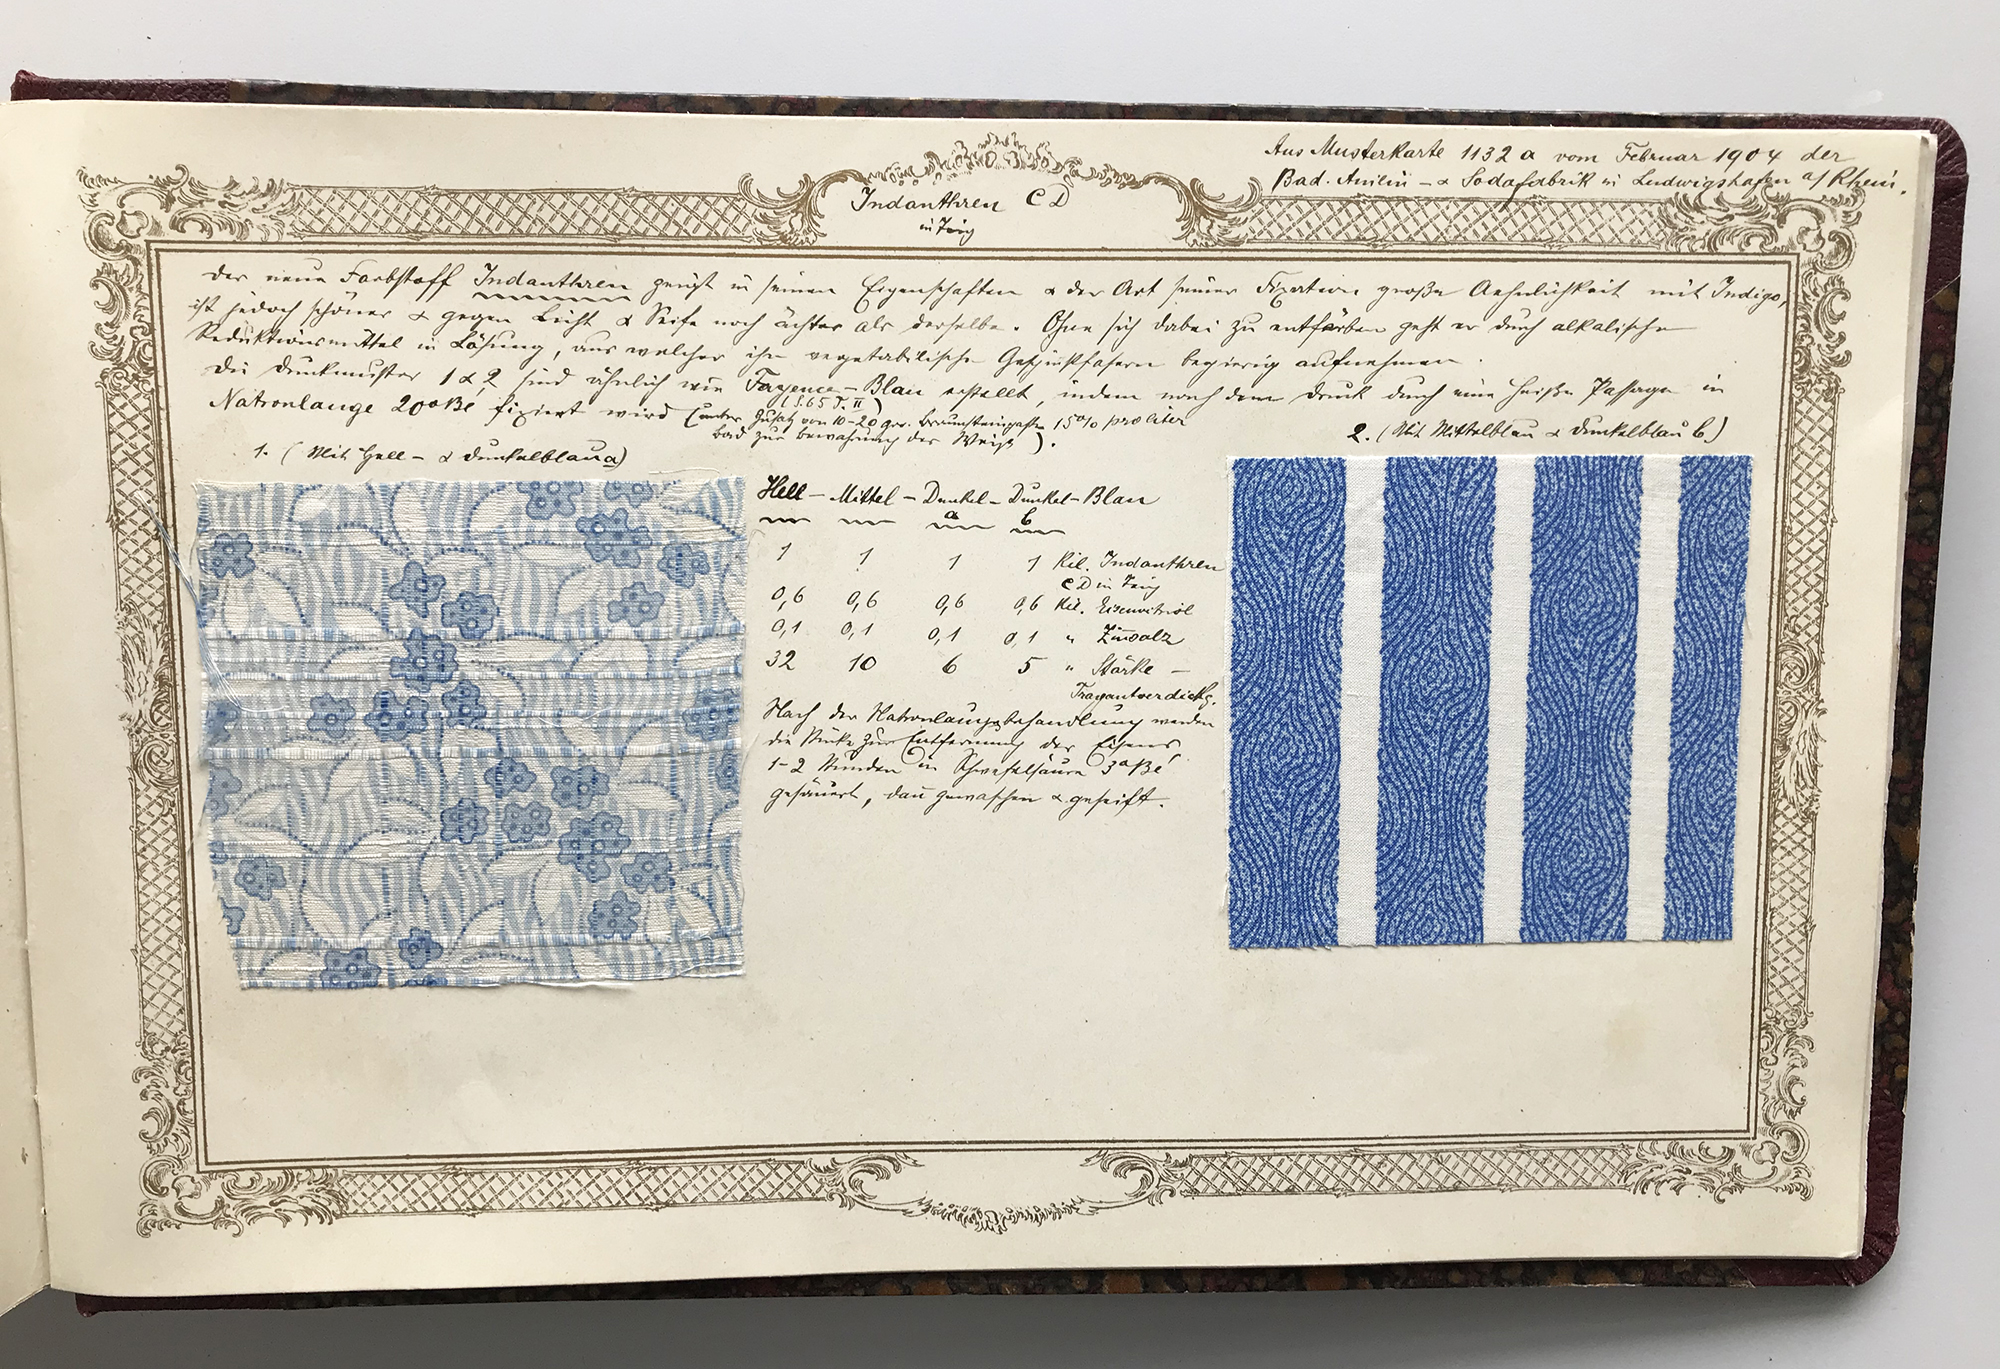 Aus Musterkarte 1132 a vom Februar 1904 der
Bad. Anilin - & Sodafabrik in Ludwigshafen a/ Rhein.
Indanthren C D
in Teig
Der neue Farbstoff Indanthren zeigt in seinen Eigenschaften & der Art seiner Fixation große Aehnlichkeit mit Indigo,
ist jedoch schöner & gegen Licht & Seife noch ächter als derselbe. Ohne sich dabei zu entfärben geht er durch alkalische
Reduktionsmittel in Lösung, aus welcher ihn vegetabilische Gespinstfasern begierig aufnehmen.
Die Druckmuster 1 & 2 sind ähnlich wie Fayence-Blau erstellt, indem nach dem Druck durch eine heiße Passage in
(S. 65 T. II)
Natronlauge 20° Bé fixiert wird (unter Zusatz von 10-20 gr. Braunsteinpaste 15% pro liter
Bad zur Bewahrung des Weiß).
1. (Mit Hell- & Dunkelblau a)
2. (Mit Mittelblau & Dunkelblau b)
Hell - Mittel - Dunkel - Dunkel - Blau
a b
1 1 1 1 Kil. Indanthren
C D in Teig
0,6 0,6 0,6 0,6 Kil. Eisenvitriol
0,1 0,1 0,1 0,1 " Zinnsalz
32 10 6 5 " Stärke -
Tragantverdickg.
Nach der Natronlaugebehandlung werden
die Stücke zur Entfernung des Eisens
1-2 Stunden in Schwefelsäure 3° Bé
gesäuert, dann gewaschen & geseift.